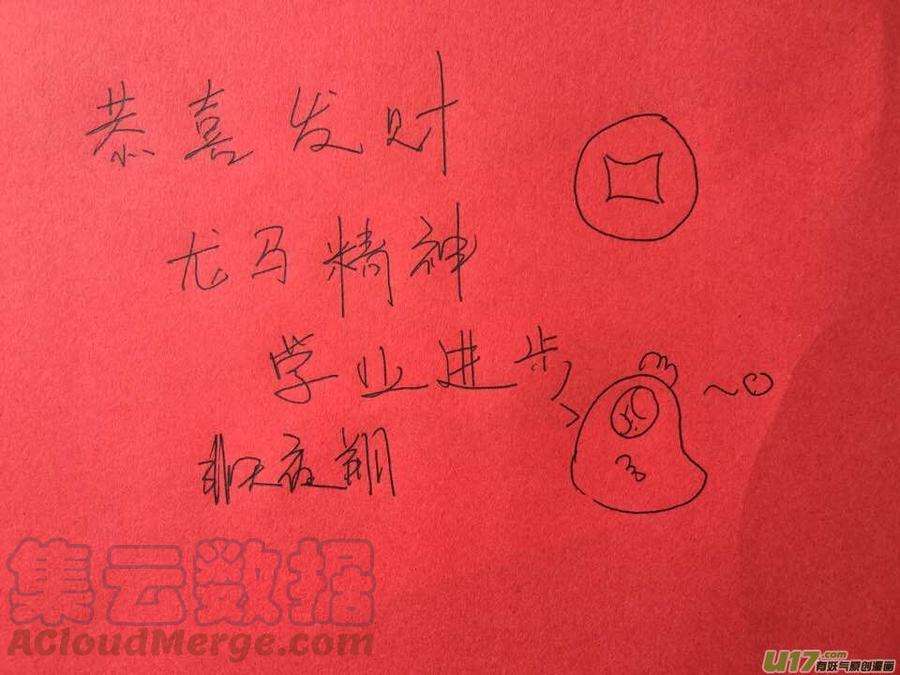 恭喜发财
龙马精神
学业进步
非天夜翔
集云数据
ACloudMerge.com
U17.com
有妖气原创漫画